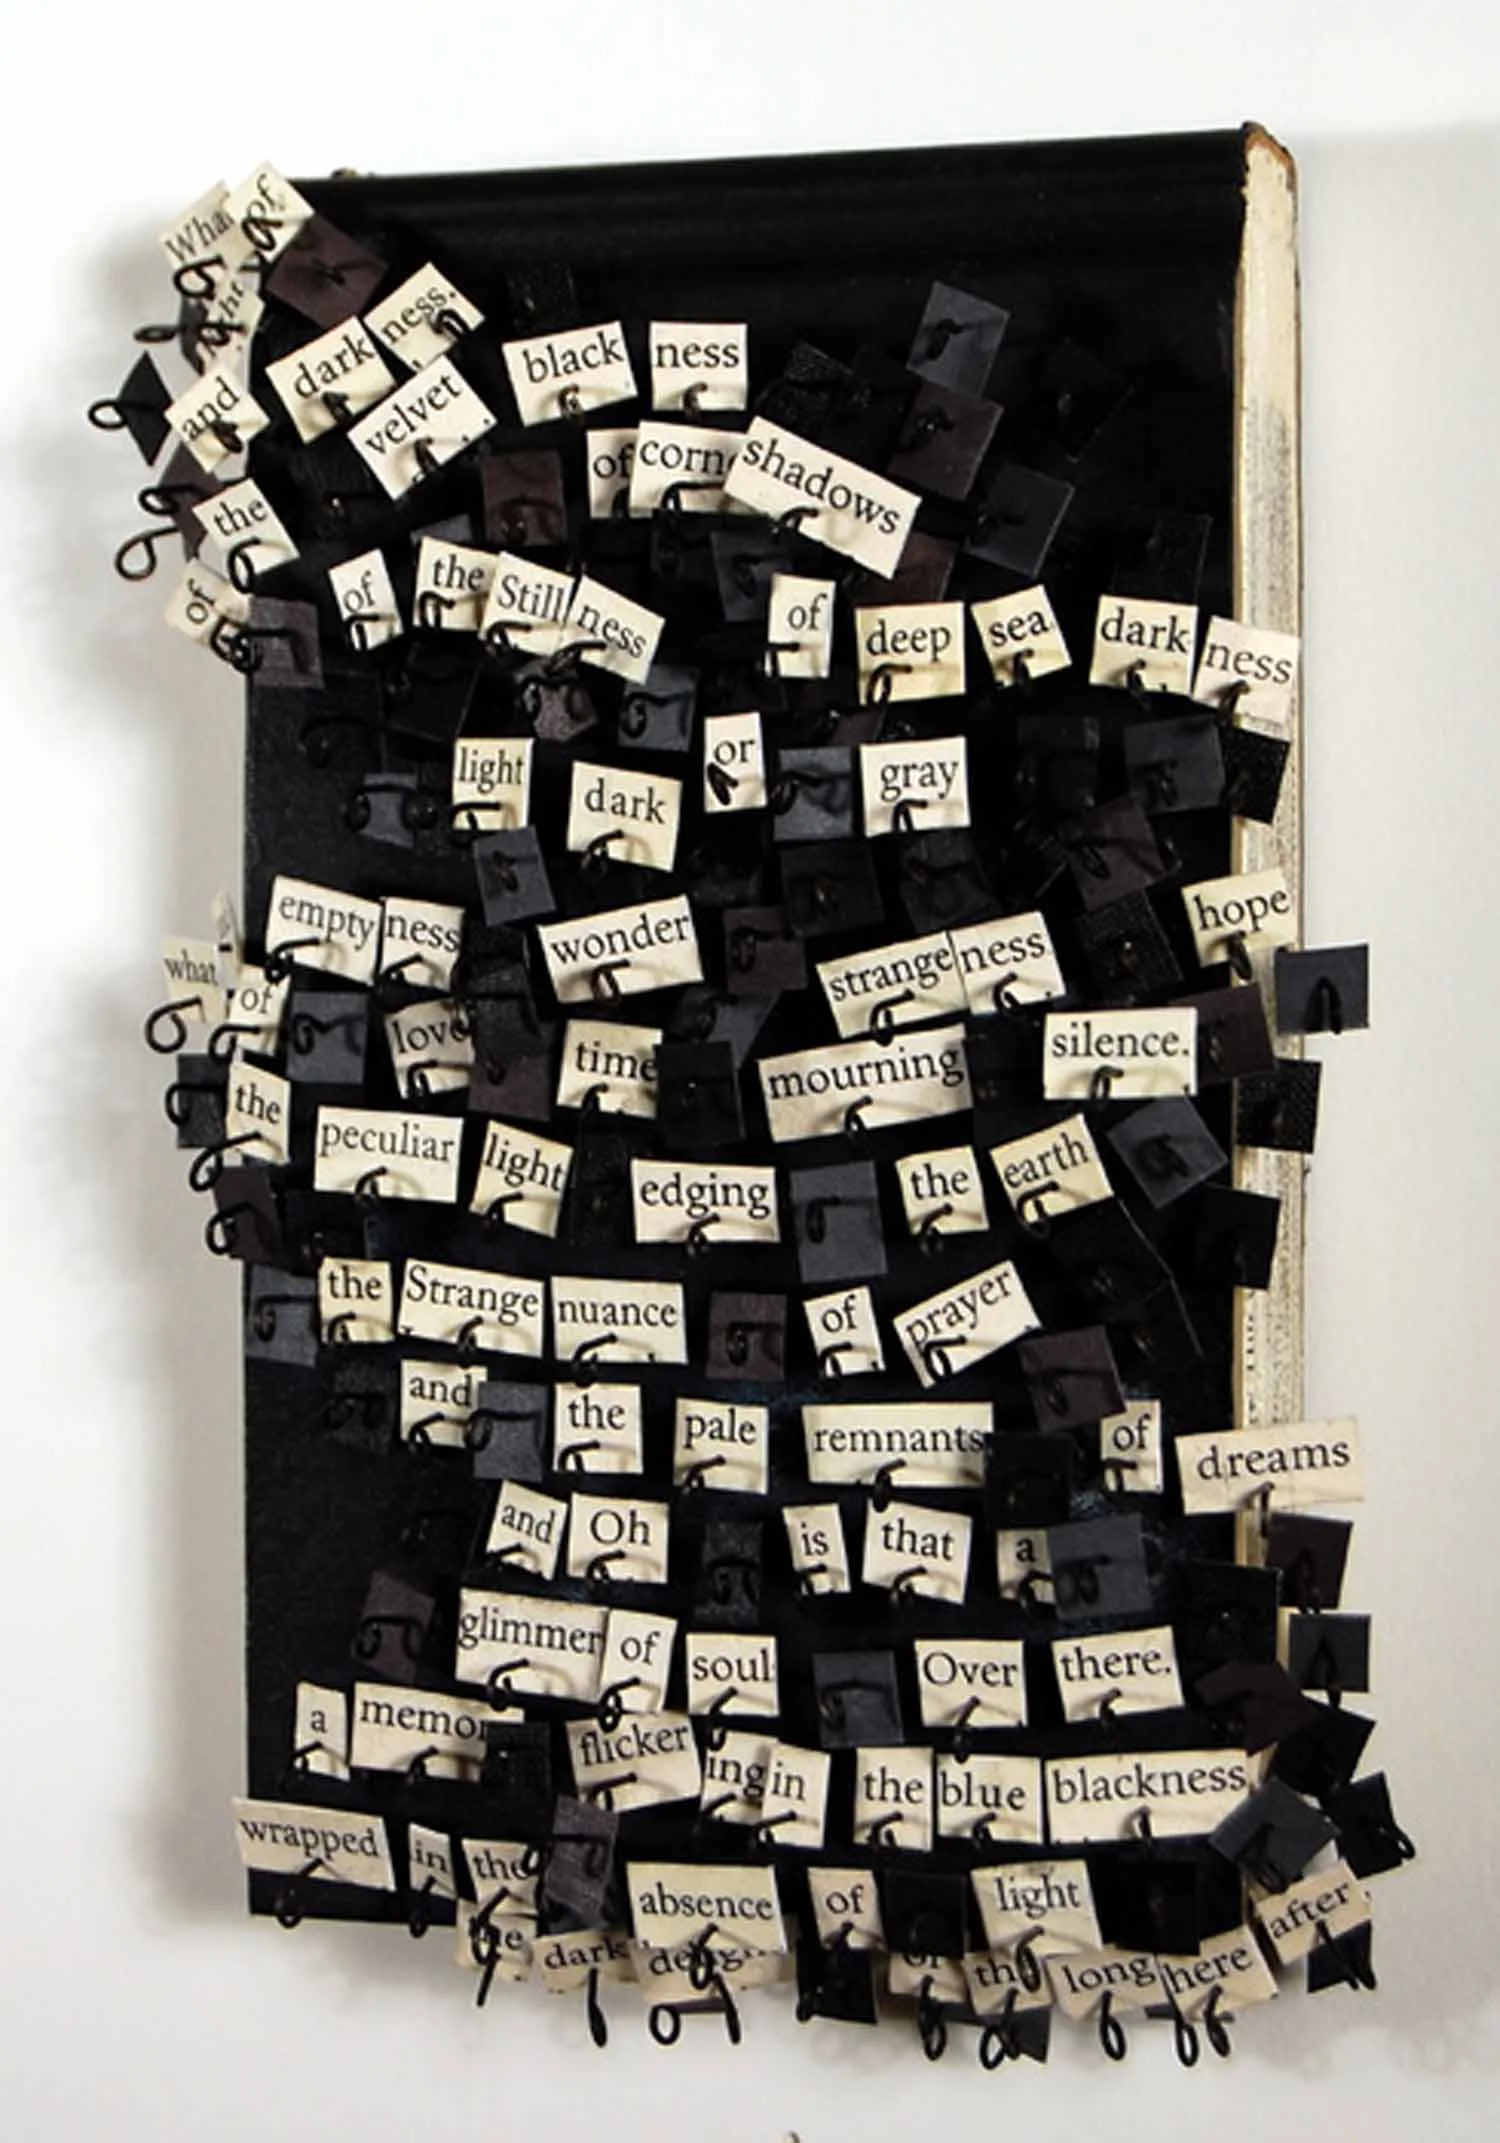 What of
and dark ness.
velvet black ness
the of shadows
of of the Still ness of deep sea dark ness
light dark or gray
empty ness wonder strange ness hope
what of love time mourning silence.
the peculiar light edging the earth
the Strange nuance of prayer
and the pale remnants of dreams
and Oh is that a
glimmer of soul Over there.
a flicker ing in the blue blackness
wrapped in the absence of light
dark the long here after